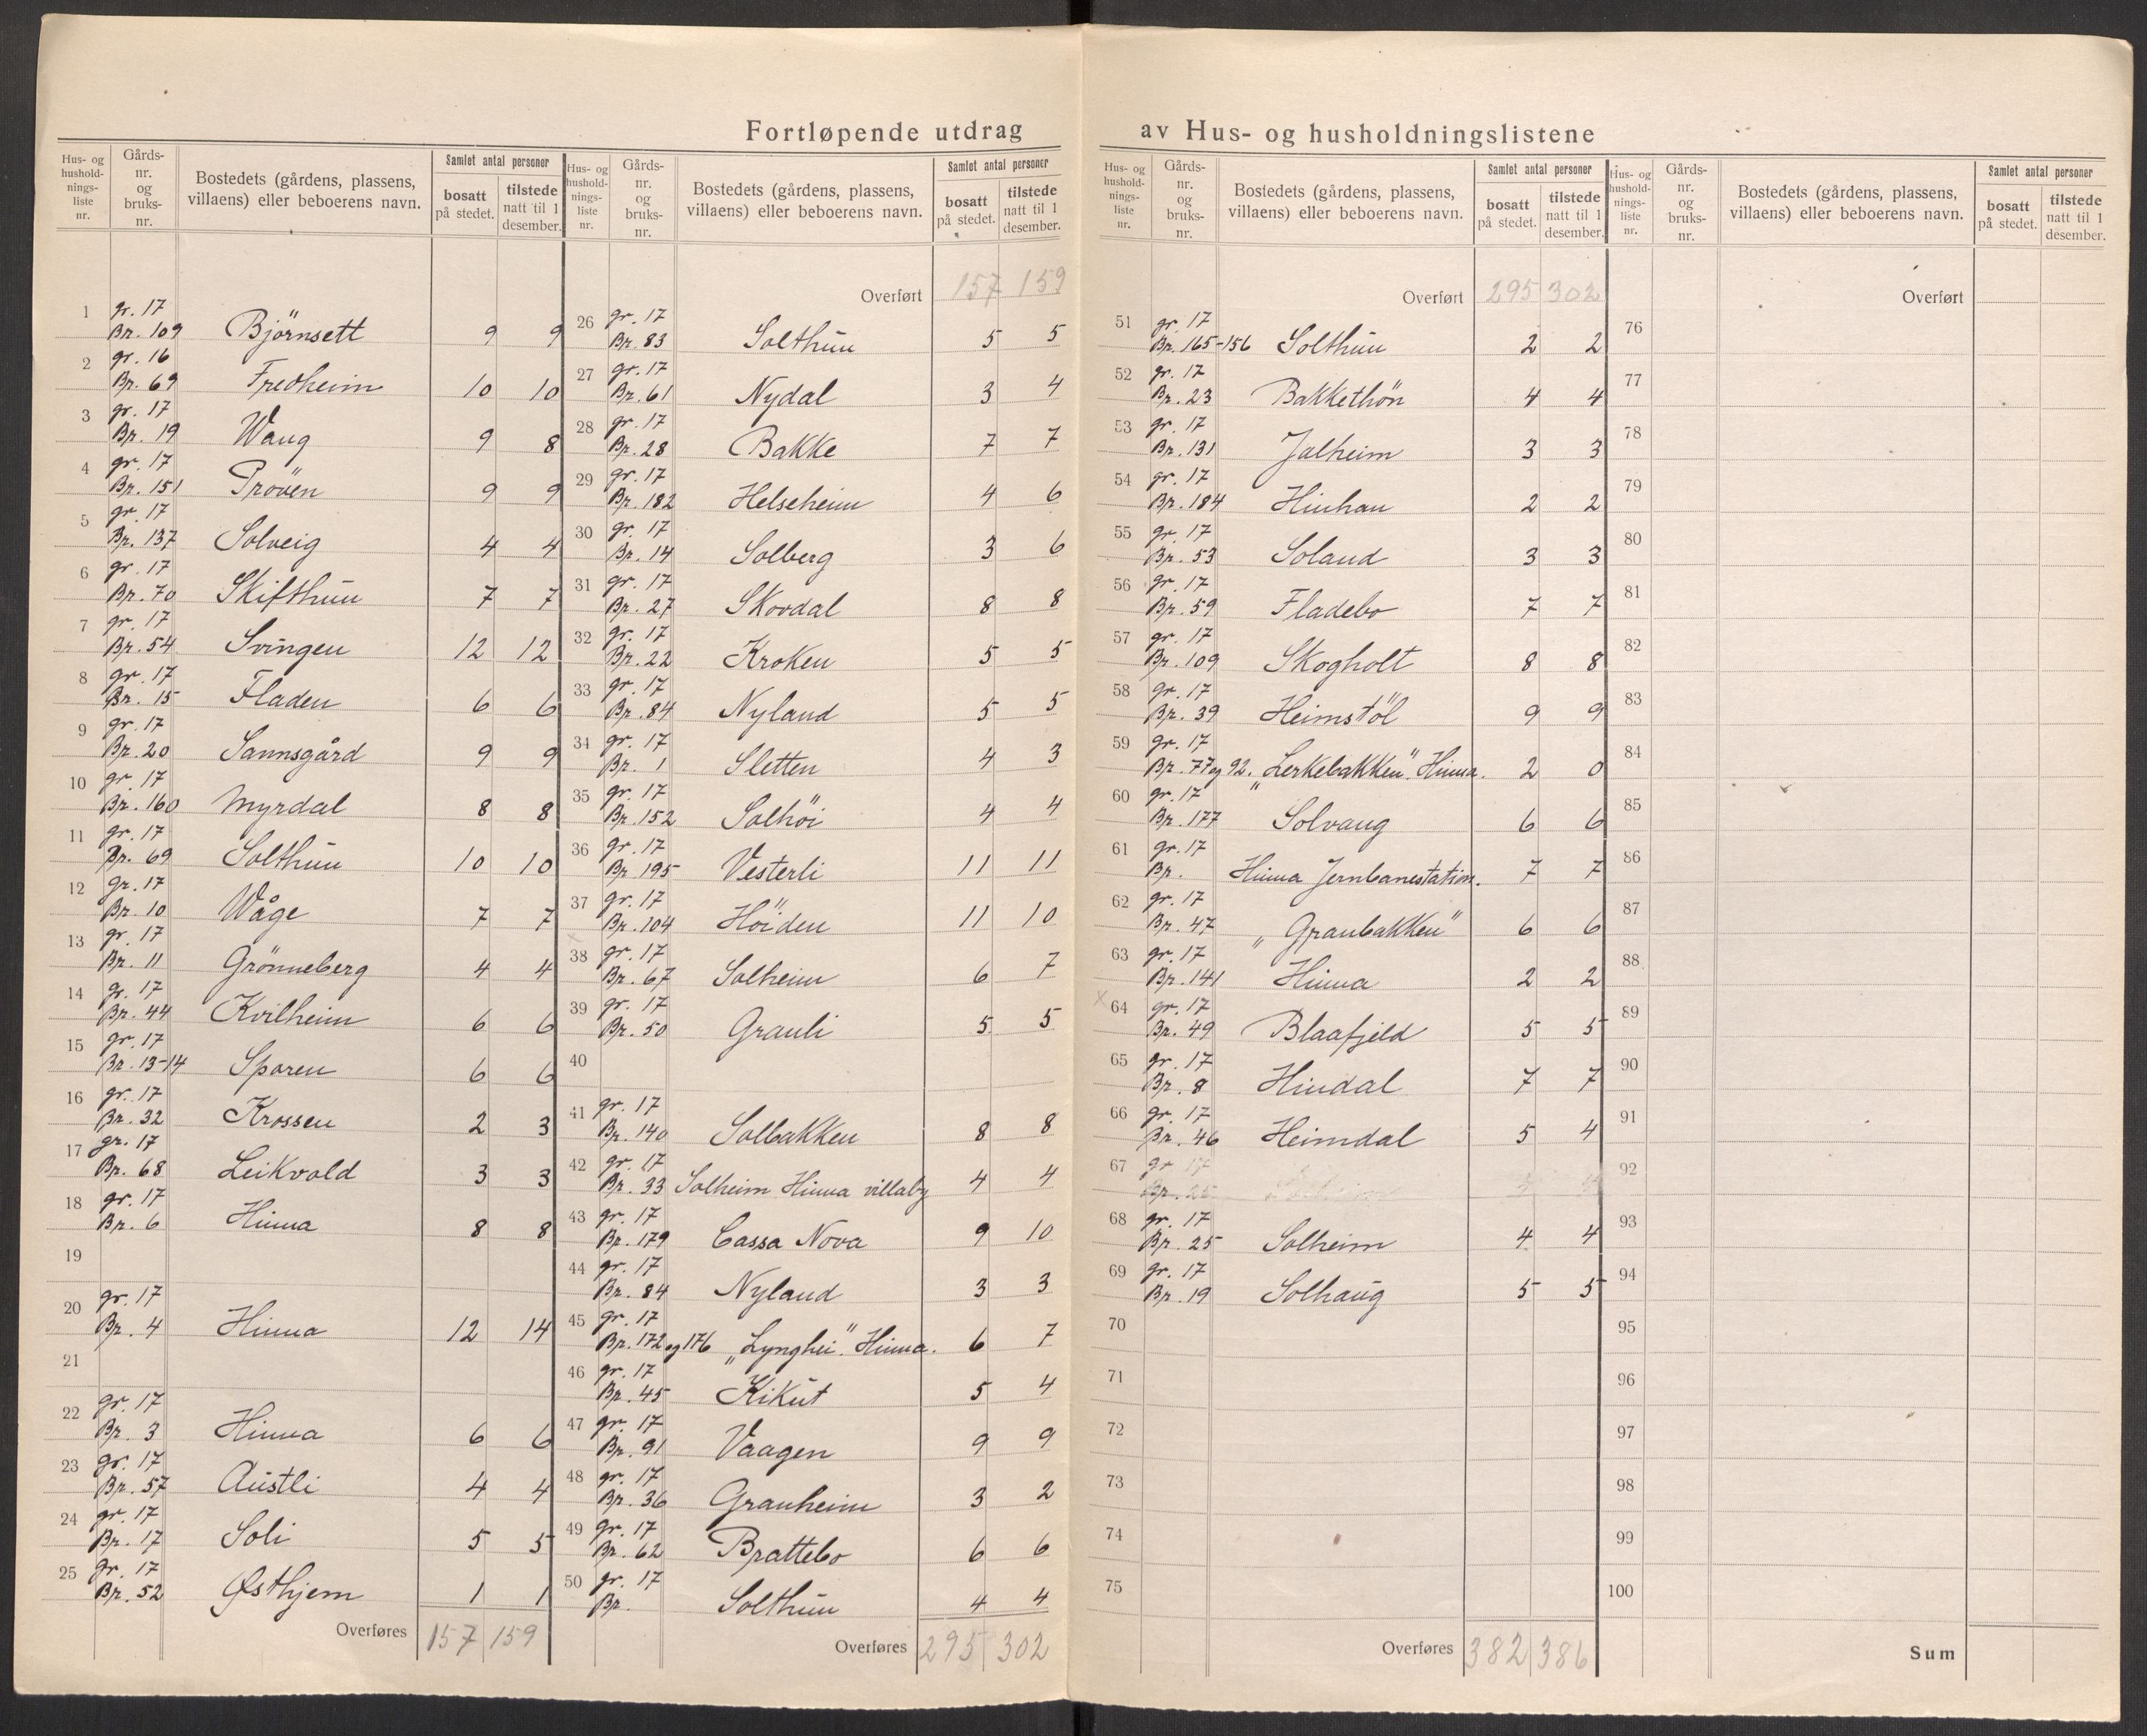 Fortløpende utdrag av Hus- og husholdningslistene
Hus- og husholdnings-liste nr. Gårds-nr. og bruks-nr. Bostedets (gårdens, plassens, villaens) eller beboerens navn. Samlet antal personer bosatt på stedet. tilstede natt til 1 desember.
1 gr. 17 Br. 109 Björnsett 9 9
2 gr. 16 Br. 69 Fredheim 10 10
3 gr. 17 Br. 19 Wang 9 8
4 gr. 17 Br. 151 Pröven 9 9
5 gr. 17 Br. 137 Solveig 4 4
6 gr. 17 Br. 70 Skifthun 7 7
7 gr. 17 Br. 54 Svingen 12 12
8 gr. 17 Br. 15 Fladen 6 6
9 gr. 17 Br. 20 Sannsgård 9 9
10 gr. 17 Br. 160 Myrdal 8 8
11 gr. 17 Br. 69 Solthun 10 10
12 gr. 17 Br. 10 Wåge 7 7
13 gr. 17 Br. 11 Grönneberg 4 4
14 gr. 17 Br. 44 Kvilheim 6 6
15 gr. 17 Br. 13-14 Sporen 6 6
16 gr. 17 Br. 32 Krossen 2 3
17 gr. 17 Br. 68 Leikvold 3 3
18 gr. 17 Br. 6 Hinna 8 8
19
20 gr. 17 Br. 4 Hinna 12 14
21
22 gr. 17 Br. 3 Hinna 6 6
23 gr. 17 Br. 57 Austli 4 4
24 gr. 17 Br. 17 Soli 5 5
25 gr. 17 Br. 52 Østhjem 1 1
Overføres 157 159
Hus- og husholdnings-liste nr. Gårds-nr. og bruks-nr. Bostedets (gårdens, plassens, villaens) eller beboerens navn. Samlet antal personer bosatt på stedet. tilstede natt til 1 desember.
Overført 157 159
26 gr. 17 Br. 83 Solthun 5 5
27 gr. 17 Br. 61 Nydal 3 4
28 gr. 17 Br. 28 Bakke 7 7
29 gr. 17 Br. 182 Helseheim 4 6
30 gr. 17 Br. 14 Solberg 3 6
31 gr. 17 Br. 27 Skovdal 8 8
32 gr. 17 Br. 22 Kroken 5 5
33 gr. 17 Br. 84 Nyland 5 5
34 gr. 17 Br. 1 Sletten 4 3
35 gr. 17 Br. 152 Solhöi 4 4
36 gr. 17 Br. 195 Vesterli 11 11
37 gr. 17 Br. 104 Höiden 11 10
38 gr. 17 Br. 67 Solheim 6 7
39 gr. 17 Br. 50 Granli 5 5
40
41 gr. 17 Br. 140 Solbakken 8 8
42 gr. 17 Br. 33 Solheim Hinna villaby 4 4
43 gr. 17 Br. 179 Cassa Nova 9 10
44 gr. 17 Br. 84 Nyland 3 3
45 gr. 17 Br. 172 og 176 „Lynghei". Hinna. 6 7
46 gr. 17 Br. 45 Kikut 5 4
47 gr. 17 Br. 91 Vaagen 9 9
48 gr. 17 Br. 36 Granheim 3 2
49 gr. 17 Br. 62 Brattebo 6 6
50 gr. 17 Br. Solthun 4 4
Overføres 295 302
Hus- og husholdnings-liste nr. Gårds-nr. og bruks-nr. Bostedets (gårdens, plassens, villaens) eller beboerens navn. Samlet antal personer bosatt på stedet. tilstede natt til 1 desember.
Overført 295 302
51 gr. 17 Br. 165-156 Solthun 2 2
52 gr. 17 Br. 23 Bakkethön 4 4
53 gr. 17 Br. 131 Jalheim 3 3
54 gr. 17 Br. 184 Hinhau 2 2
55 gr. 17 Br. 53 Soland 3 3
56 gr. 17 Br. 59 Fladebo 7 7
57 gr. 17 Br. 109 Skogholt 8 8
58 gr. 17 Br. 39 Heimstöl 9 9
59 gr. 17 Br. 77 og 92. „Lerkebakken". Hinna. 2 0
60 gr. 17 Br. 177 Solvang 6 6
61 gr. 17 Br. Hinna Jernbanestation. 7 7
62 gr. 17 Br. 47 „Granbakken" 6 6
63 gr. 17 Br. 141 Hinna 2 2
x 64 gr. 17 Br. 49 Blaafjeld 5 5
65 gr. 17 Br. 8 Hindal 7 7
66 gr. 17 Br. 46 Heimdal 5 4
67 gr 17 Br. 25
68 gr. 17 Br. 25 Solheim 4 4
69 gr. 17 Br. 19 Solhaug 5 5
70
71
72
73
74
75
Overføres 382 386
Hus- og husholdnings-liste nr. Gårds-nr. og bruks-nr. Bostedets (gårdens, plassens, villaens) eller beboerens navn. Samlet antal personer bosatt på stedet. tilstede natt til 1 desember.
Overført
76
77
78
79
80
81
82
83
84
85
86
87
88
89
90
91
92
93
94
95
96
97
98
99
100
Sum